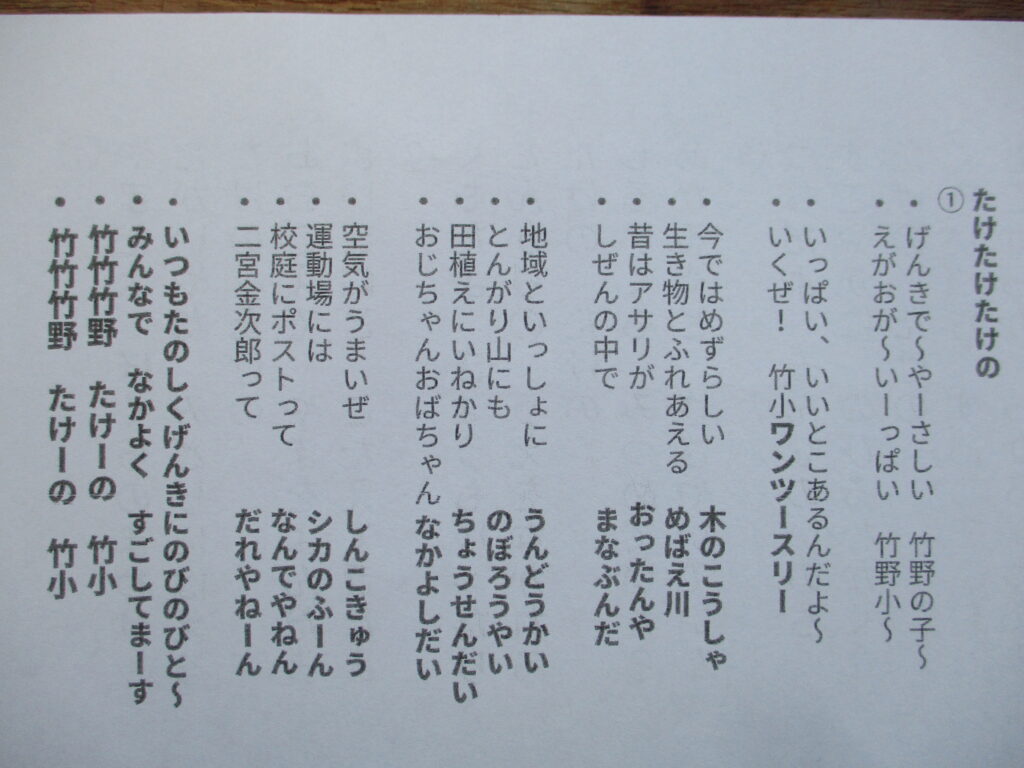 たけたけたけの
①
• げんきで～やーさしい　竹野の子～
• えがおが～いーっぱい　竹野小～
• いっぱい、いいとこあるんだよ～
• いくぜ！　竹小ワンツースリー
• 今ではめずらしい　木のこうしゃ
• 生き物とふれあえる　めばえ川
• 昔はアサリが　おったんや
• しぜんの中で　まなぶんだ
• 地域といっしょに　うんどうかい
• とんがり山にも　のぼろうやい
• 田植えにいねかり　ちょうせんだい
• おじちゃんおばちゃん　なかよしだい
• 空気がうまいぜ　しんこきゅう
• 運動場には　シカのふーん
• 校庭にポストって　なんでやねん
• 二宮金次郎って　だれやねーん
• いつもたのしくげんきにのびのびと～
• みんなで　なかよく　すごしてまーす
• 竹竹竹野　たけーの　竹小
• 竹竹竹野　たけーの　竹小